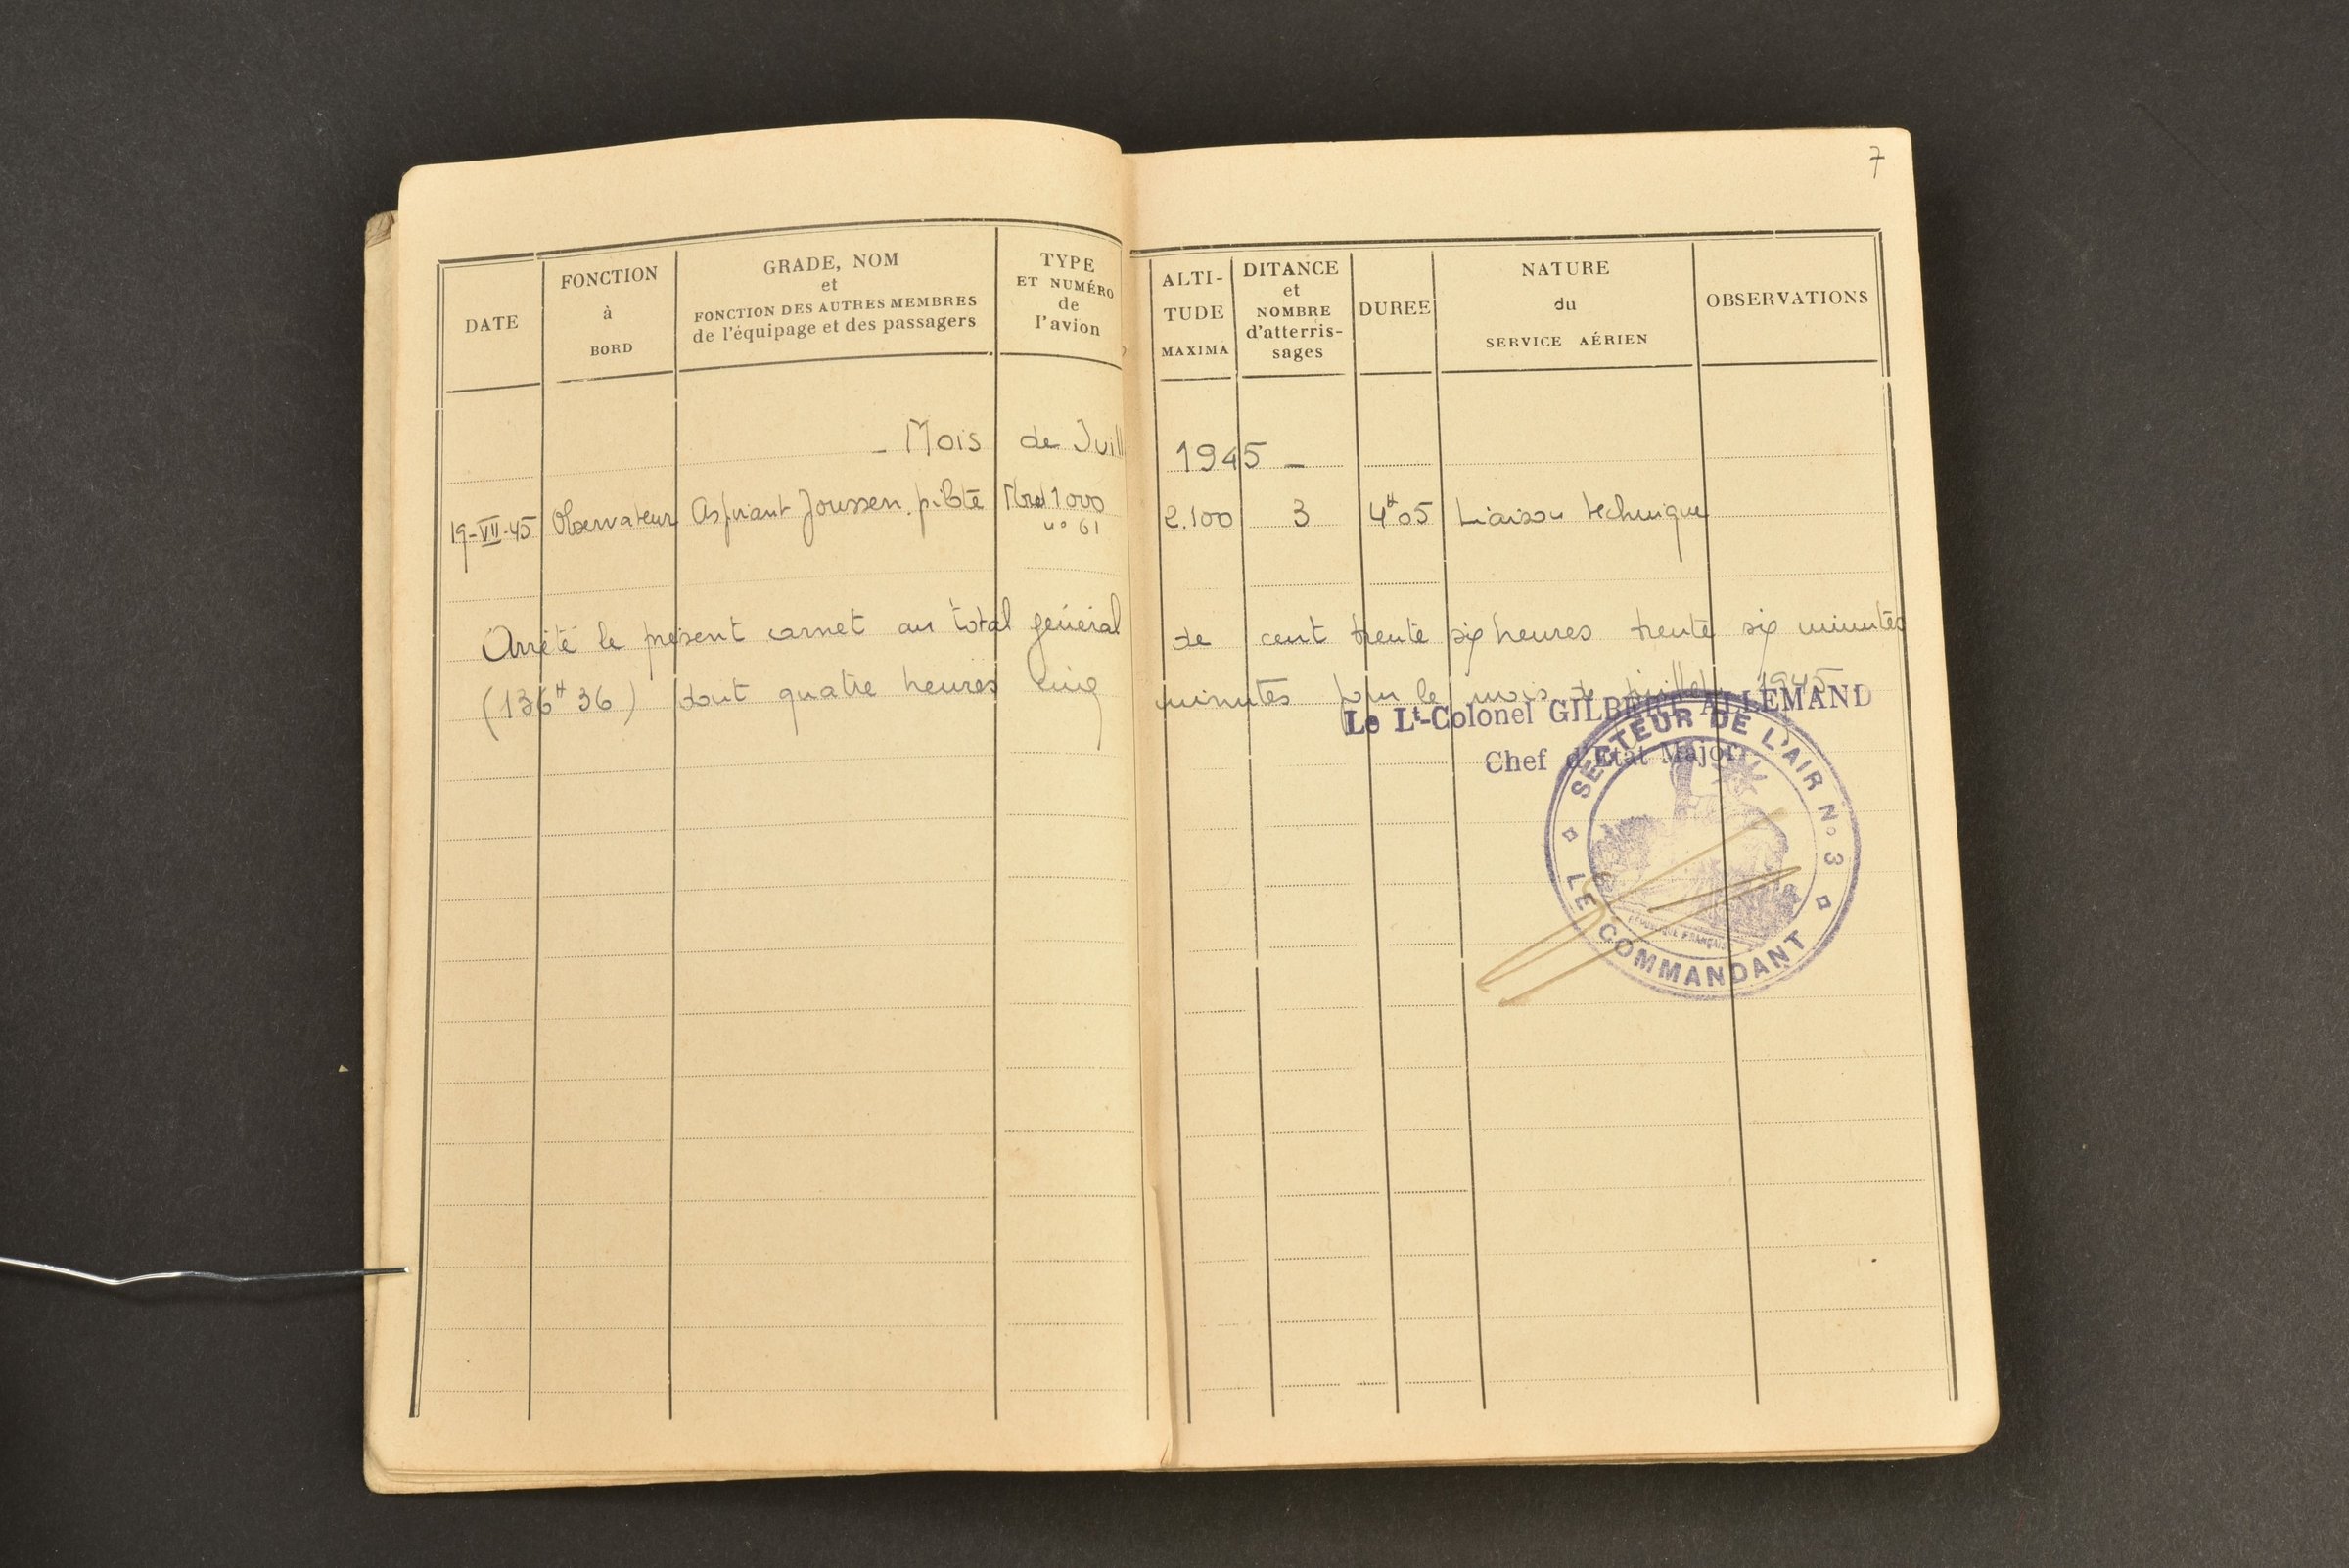 7
DATE
FONCTION
à
BORD
GRADE, NOM
et
FONCTION DES AUTRES MEMBRES
de l'équipage et des passagers
TYPE
ET NUMÉRO
de
l'avion
ALTI-
TUDE
MAXIMA
DITANCE
et
NOMBRE
d'atterris-
sages
DUREE
NATURE
du
SERVICE AÉRIEN
OBSERVATIONS
- Mois de Juill 1945 -
19-VII-45 Observateur Aspirant Joussen. pilote 1000 2.100 3 4H05 Liaison technique
n° 61
Arrêté le présent carnet au total général de cent trente six heures trente six minutes
(136H36) dont quatre heures cinq minutes pour le mois de juillet 1945
Le Lt-Colonel GILBERT ALLEMAND
Chef d'Etat Major
SECTEUR DE L'AIR N° 3
LE COMMANDANT